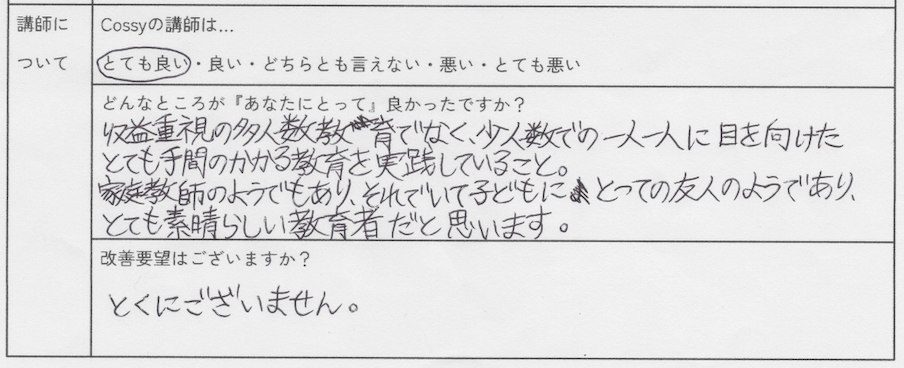 講師に
ついて
Cossyの講師は...
とても良い・良い・どちらとも言えない・悪い・とても悪い
どんなところが『あなたにとって』良かったですか？
収益重視の多人数教育でなく、少人数での一人一人に目を向けた
とても手間のかかる教育を実践していること。
家庭教師のようでもあり、それでいて子どもにとっての友人のようであり、
とても素晴らしい教育者だと思います。
改善要望はございますか？
とくにございません。